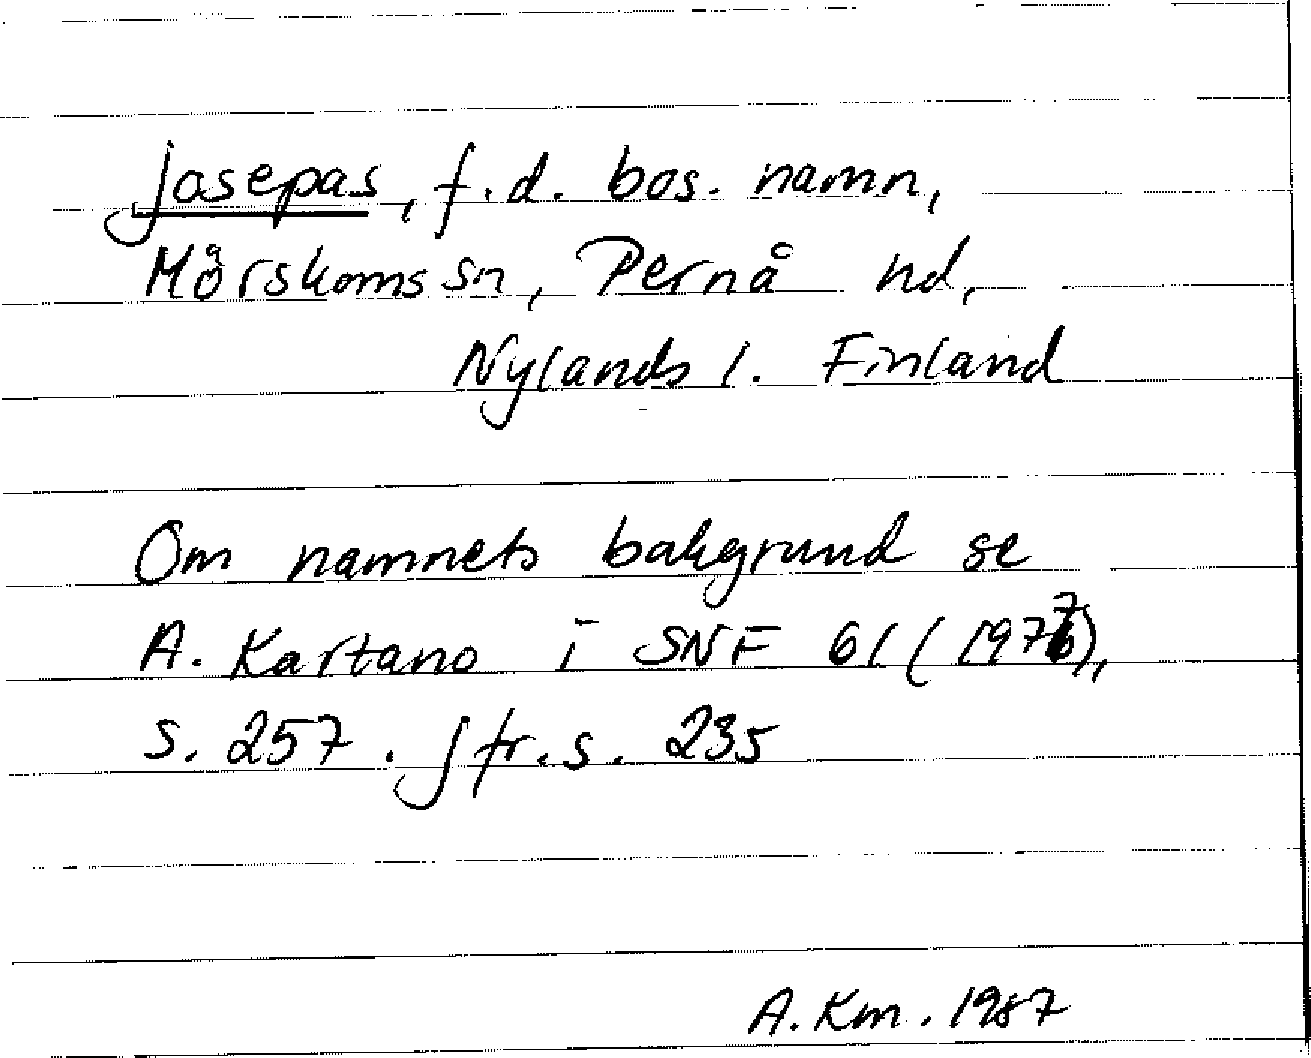 Josepas, f.d. bos. namn,
Mörskoms sn, Pernå hd,
Nylands l. Finland
Om namnets bakgrund se
A. Kartano i SNF 61 (1977),
s. 257. Jfr. s. 235
A. Km. 1987